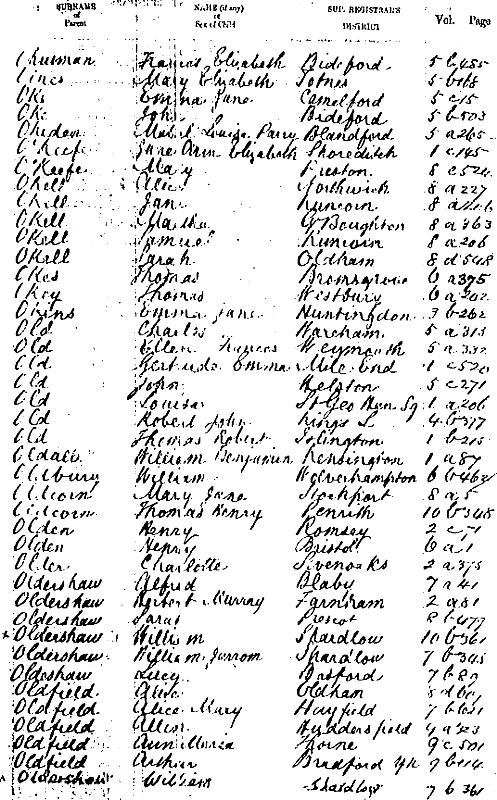 SURNAME of Parent NAME (if any) or Sex of Child SUP. REGISTRAR'S DISTRICT Vol. Page
Frances Elizabeth Bideford 5 b 485
Mary Elizabeth Totnes 5 b 168
Oke Emma Jane Camelford 5 c 15
Oke John Bideford 5 b 503
Okeden Mabel Louisa Parry Blandford 5 a 265
O'Keefe Jane Ann Elizabeth Shoreditch 1 c 145
O'Keefe Mary Preston 8 e 524
Okell Alice Northwich 8 a 227
Okell Jane Runcorn 8 a
Okell Martha Gt Boughton 8 a 363
Okell James Runcorn 8 a 206
Okell Sarah Oldham 8 d 548
Okes Thomas Bromsgrove 6 a 375
Okey Thomas Westbury 6 a 202
Okins Emma Jane Huntingdon 3 b 262
Old Charles Wareham 5 a 313
Old Ellen Frances Weymouth 5 a 332
Old Gertrude Emma Mile End 1 c 520
Old John Helston 5 c 271
Old Louisa St Geo Han Sq 1 a 206
Old Robert John Kings L. 4 b 317
Old Thomas Robert Islington 1 b 215
Oldale William Benjamin Kensington 1 a 87
Oldbury William Wolverhampton 6 b 462
Oldcorn Mary Jane Stockport 8 a 5
Oldcorn Thomas Henry Penrith 10 b 348
Olden Henry Romsey 2 c 71
Olden Henry Bristol 6 a 1
Older Charlotte Sevenoaks 2 a 373
Oldershaw Alfred Blaby 7 a 41
Oldershaw Herbert Murray Farnham 2 a 81
Oldershaw Sarah Prescot 8 b 477
x Oldershaw William Shardlow 10 b 361
Oldershaw William Jarrom Shardlow 7 b 345
Oldershaw Lucy Basford 7 b 89
Oldfield Alice Oldham 8 d
Oldfield Alice Mary Hayfield 7 b 621
Oldfield Allen Huddersfield 9 a 323
Oldfield Ann Maria Thorne 9 c 501
Oldfield Arthur Bradford Yk 9 b 114
Oldershaw William Shardlow 7 b 361